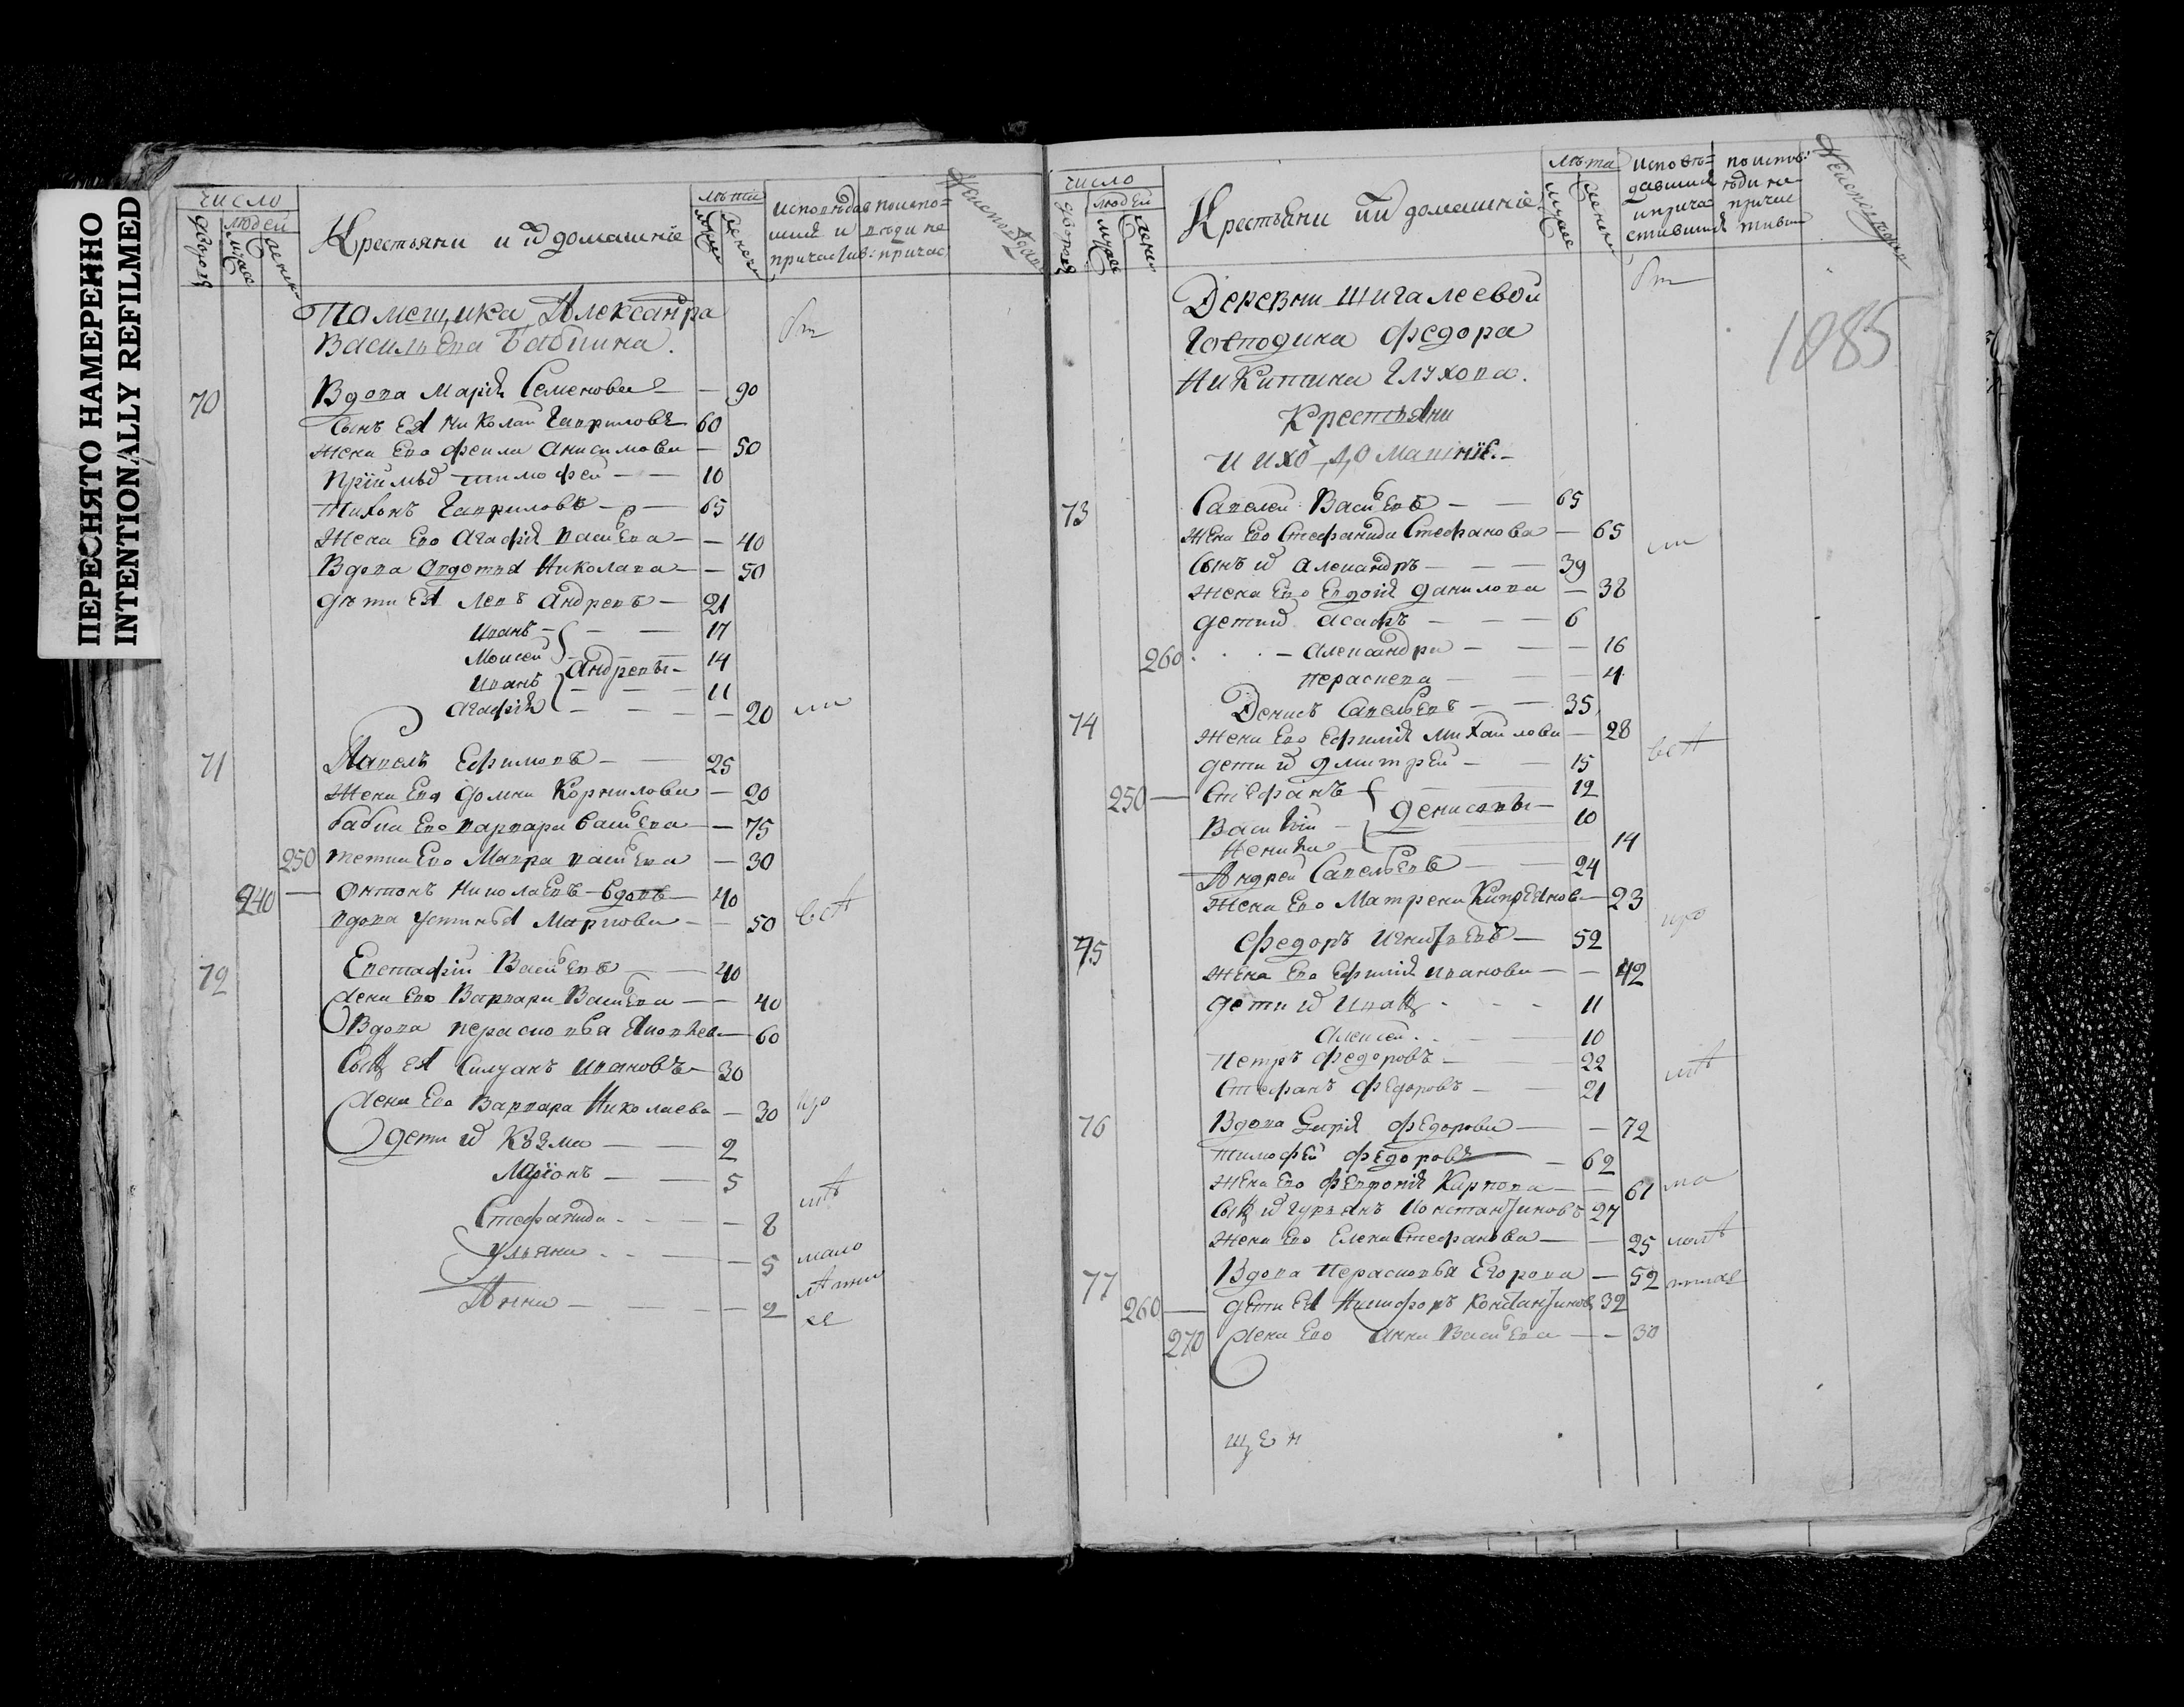 ПЕРЕСНЯТО НАМЕРЕННО
INTENTIONALLY REFILMED
число
дворовъ
людей
мужес
женск
Крестьяни и ихъ домашніе
лѣта
мужес
женски
исповѣдав
шихъ и
причастив:
поиспо=
вѣди не
причас
Неисповѣдав
Помещика Александра
Васильева Бабкина.
70 Вдова Марія Семенова — 90
Сынъ ея Николай Гаврилов 60
жена Ево Фекла Анисимова — 50
Пріймыш Тимофей — — 10
Тихонъ Гавриловъ — 65
Жена Ево Агафія Васильева — — 40
Вдова Овдотья Николаева — 50
дѣти Ея Левъ Андревъ — 21
Иванъ — — 17
Моисей — 14
Андревы
Иванъ — — 11
Агафія — — — 20
71 Павелъ Ефимовъ — 25
Жена Ево Домна Корнилова — 20
бабка Ево Варвара Васильева — 75
250 тетка Ево Мавра Васильева — 30
240 — Антонъ Николаевъ вдовъ 40
вдова Устинья Маркова — 50
72 Евстафій Васильевъ — 40
жена Ево Варвара Васильева — — 40
Вдова Перасковья Яковлев — 60
Сынъ ея Силуанъ Ивановъ 30
жена Ево Варвара Николаева — 30
дети их Козма — — 2
Ларіонъ — — 5
Стефанида — — 8
Ульяна — — 5
Анна — — — 2
вси
вся
мало
число
дворовъ
людей
мужес
женск
Крестьяни ихъ домашніе
лѣта
мужес
женски
исповѣ=
давшихъ
иприча
стившихъ
поиспов:
ѣди не
причас
тивши
1085
Деревни Шигалеевой
Господина Федора
Никитина Глухова.
Крестьяни
и ихъ домашніе.
73 Савелей Васильевъ — — 65
Жена Ево Стефанида Стефанова — 65
Сынъ их Александръ — — 39
Жена Ево Евдокія Данилова — 38
дети их Асафъ — — — 6
260 — Александра — — 16
Пераскева — — 4
74 Денисъ Савельевъ — — 35
Жена Ево Ефимія Михайлова — 28
дети их Дмитрей — — 15
250 — Стефанъ — 12
Денисовы
Василій — 10
14
Андрей Савельевъ — — 24
Жена Ево Матрена Кипреянов — 23
75 Федоръ Игнатьевъ — 52
Жена Ево Ефимія Иванова — — 42
дети их Иванъ — 11
Алексей — 10
Петръ Федоровъ — 22
Стефанъ Федоровъ — 21
76 Вдова Дарія Федорова — — 72
Тимофей Федоровъ — 62
Жена Ево Феврония Карпова — — 61
Сынъ их Гурьянъ Константиновъ 27
Жена Ево Елена Стефанова — — 25
77 Вдова Перасковья Егорова — 52
260 — Дети Ея Никифоръ Константинов 32
270 жена Ево Анна Васильева — — 30